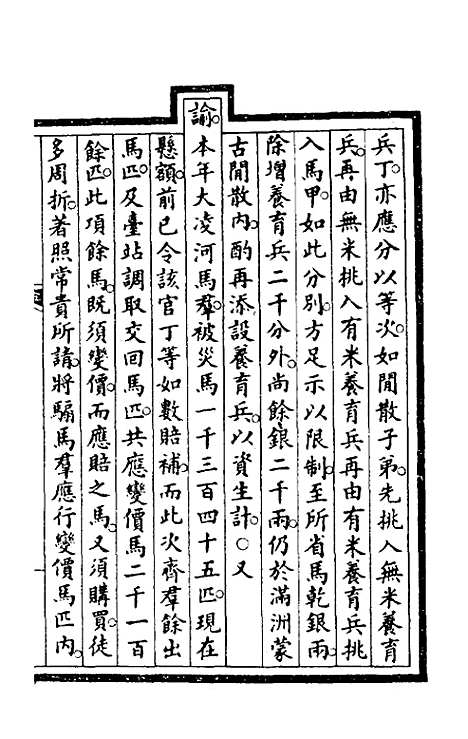 兵丁。亦應分以等次。如閒散子弟。先挑入無米養育
兵。再由無米挑入有米養育兵。再由有米養育兵挑
入馬甲。如此分別。方足示以限制。至所省馬乾銀兩。
除增養育兵二千分外。尚餘銀二千兩。仍於滿洲蒙
古閒散內。酌再添設養育兵。以資生計。○又
諭。本年大凌河馬羣。被災馬一千三百四十五匹。現在
懸額。前已令該官丁等如數賠補。而此次齊羣餘出
馬匹。及臺站調取交回馬匹。共應變價馬二千一百
餘匹。此項餘馬。既須變價。而應賠之馬。又須購買。徒
多周折。著照常貴所請。將騸馬羣應行變價馬匹內。